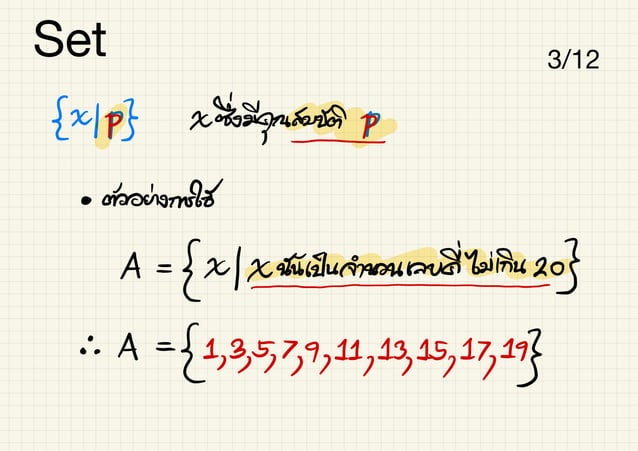 Set
3/12
{x|p} x ซึ่งมีคุณสมบัติ p
• ตัวอย่างการใช้
A = {x|x นั้นเป็นจำนวนเลขคี่ ไม่เกิน 20}
∴ A = {1,3,5,7,9,11,13,15,17,19}